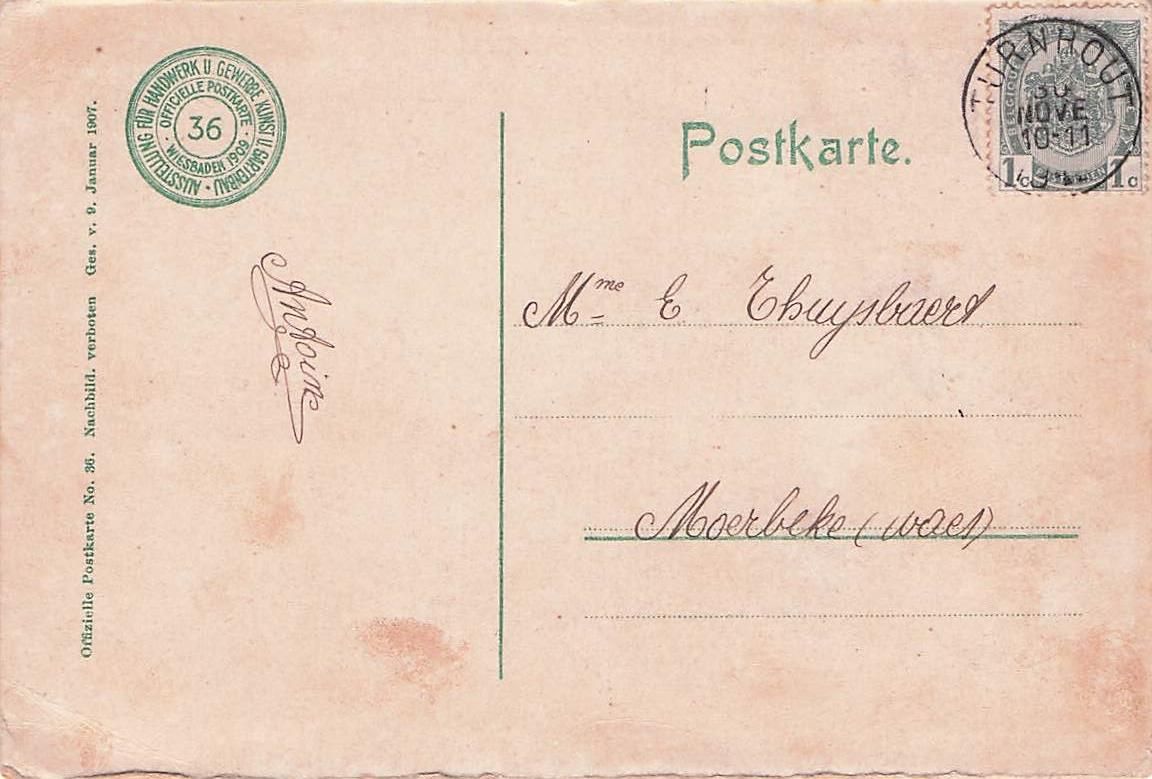 AUSSTELLUNG FÜR HANDWERK U. GEWERBE, KUNST U. GARTENBAU
OFFICIELLE POSTKARTE
36
WIESBADEN 1909
Offizielle Postkarte No. 36. Nachbild. verboten Ges. v. 9. Januar 1907.
Postkarte.
TURNHOUT
30
NOVE
10-11
BELGIQUE
1c 1c
Antoine
Mme E Thuysbaert
Moerbeke (waes)